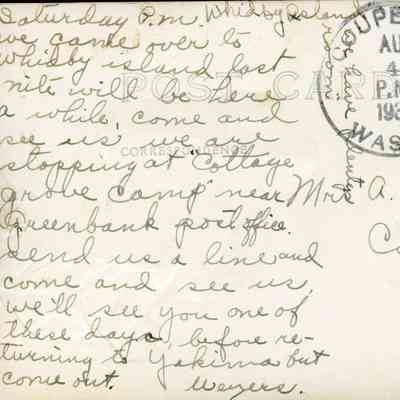 Saturday P.m. Whidby Island
we came over to
whidby island last
nite will be here
a while, come and
see us. we are
stopping at "Cottage
grove camp" near
Greenbank post office.
send us a line and
come and see us,
we'll see you one of
these days, before re-
turning to Yakima but
come out. Meyers.
we have plenty
room
POST CARD
CORRESPONDENCE
Mrs A.
C
SUPE
AU
4
P.M
193
WAS